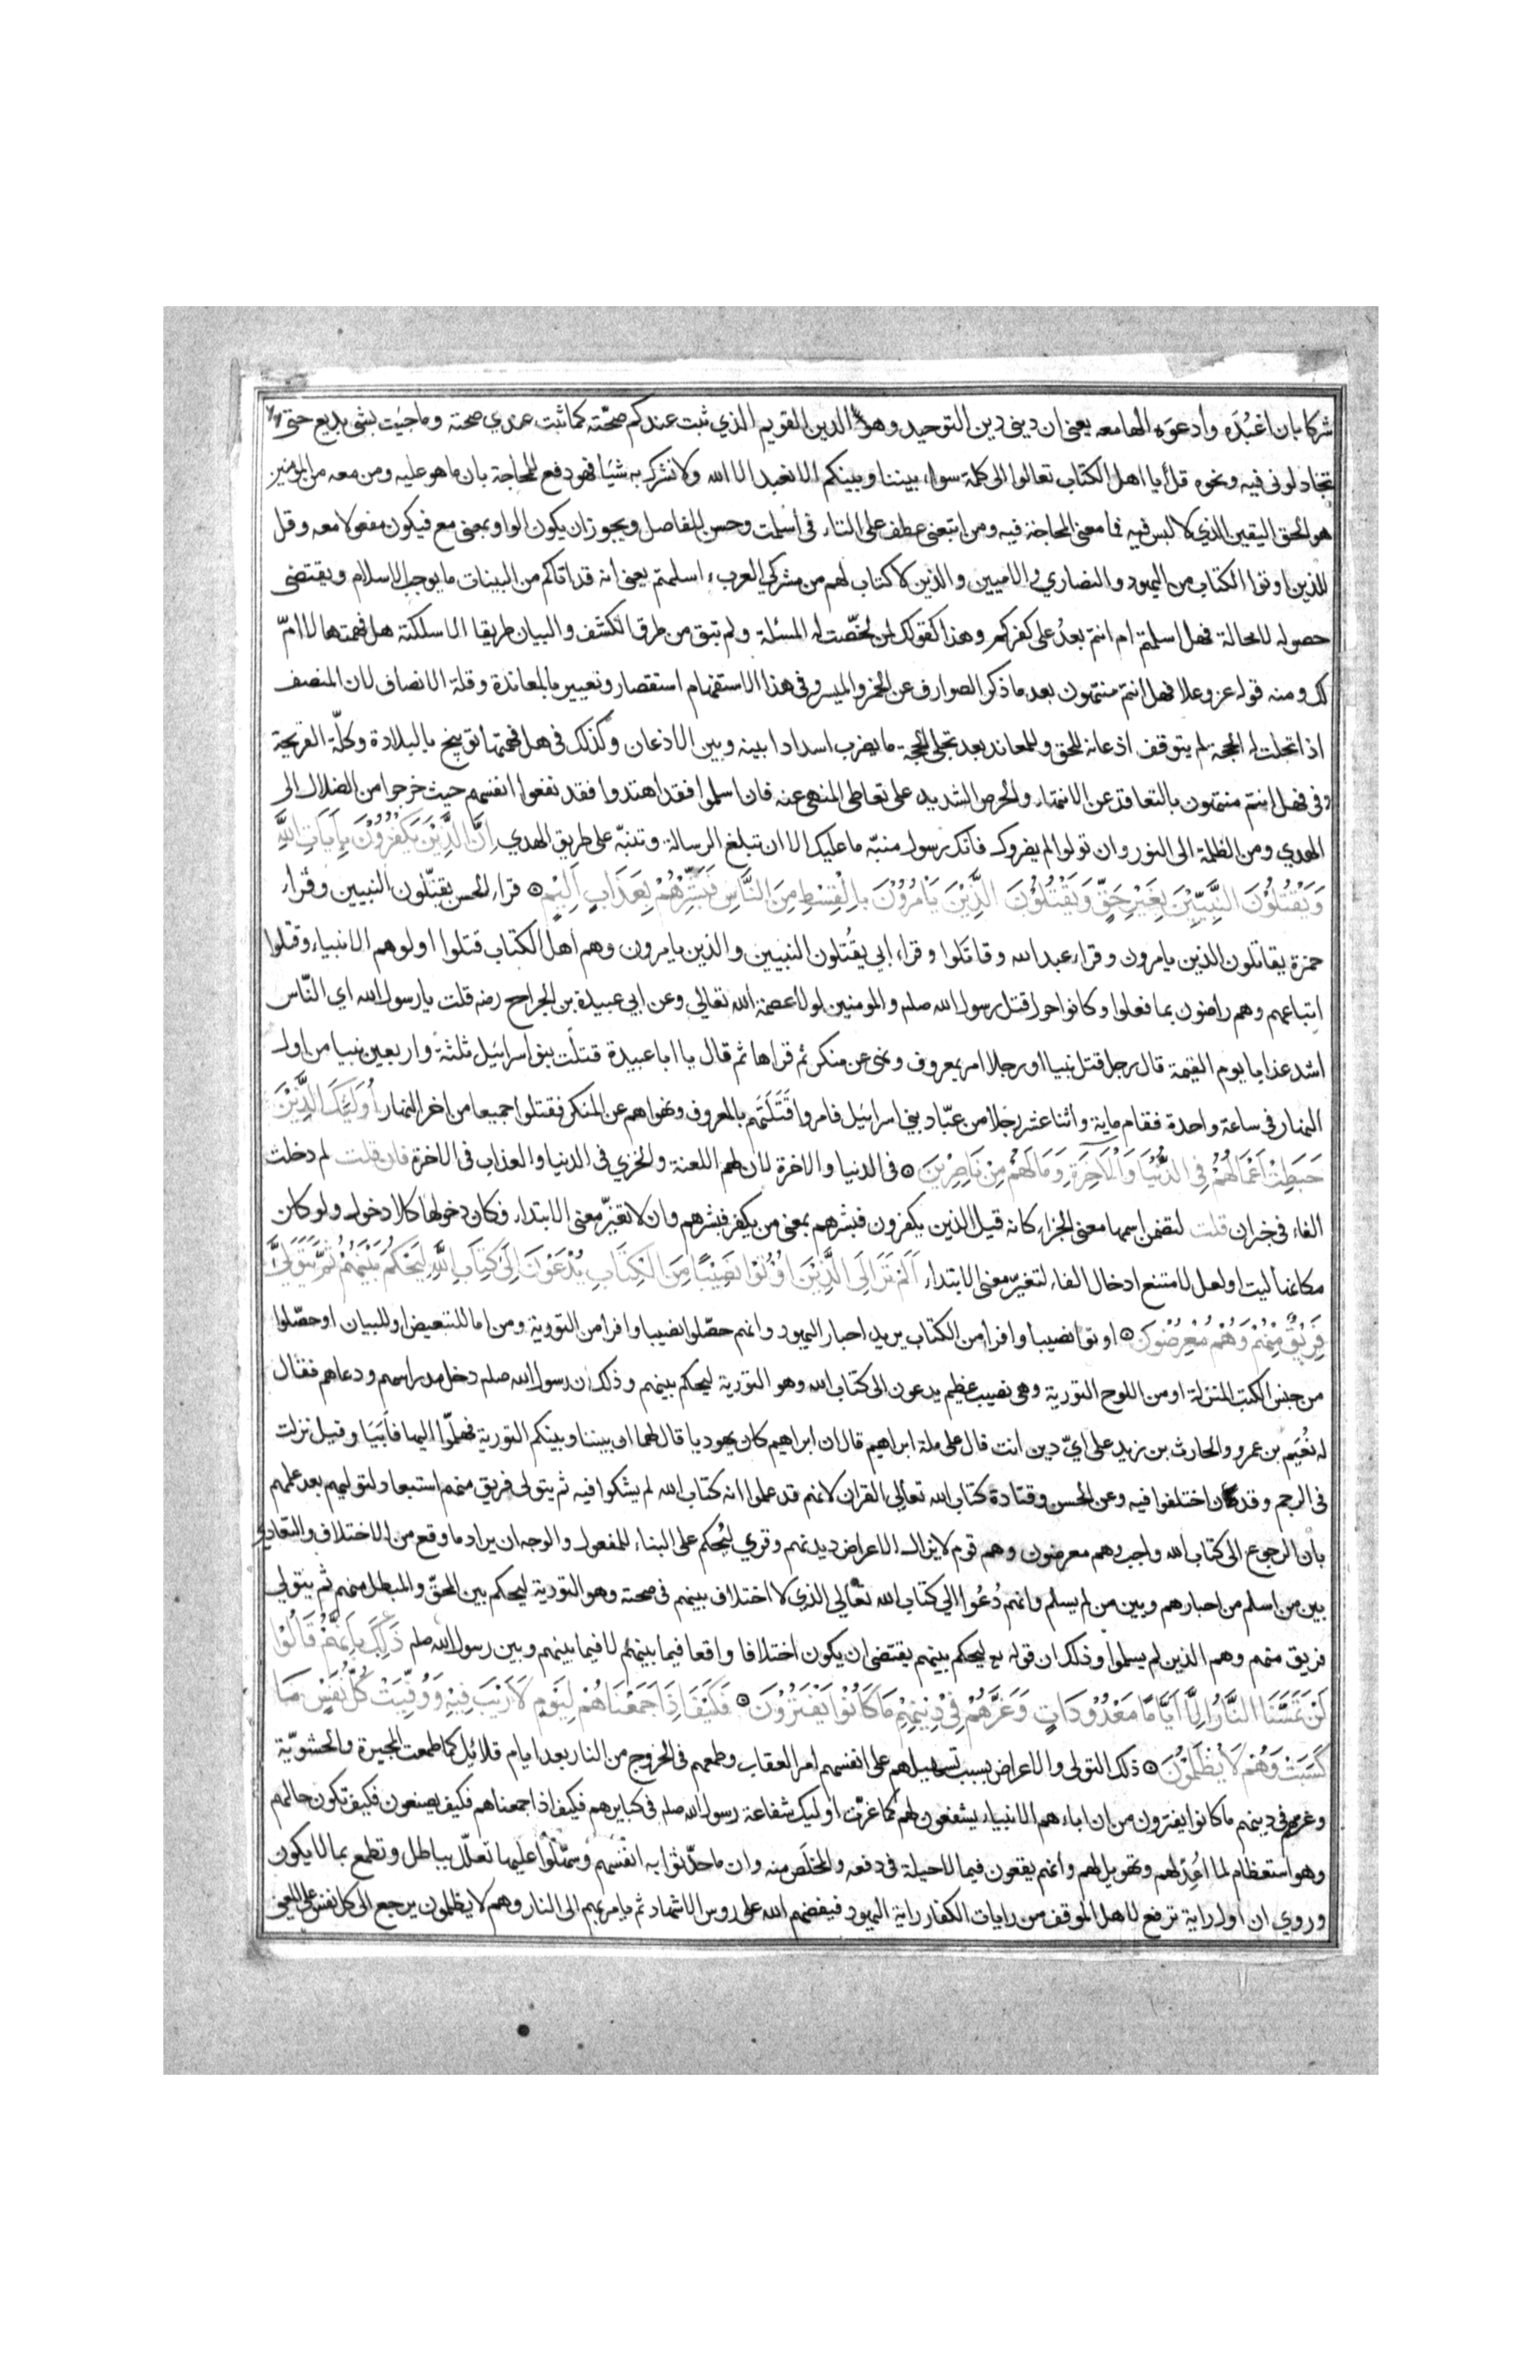 شركا بان اعبُدَه وأدعوَه الها معه يعني ان ديني دين التوحيد وهو الدين القويم الذي ثبت عندكم صحّته كما ثبت عندي صحته وما جئت بشي بديع حتى
تجادلوني فيه ونحوه قل يا اهل الكتاب تعالوا الى كلمة سواء بيننا وبينكم الا نعبد الا الله ولا نشرك به شئا فهو دفع للمحاجة بان ما هو عليه ومن معه من المومنين
هو الحق اليقين الذي لا لبس فيه فما معنى المحاجة فيه ومن اتبعني عطف على التاء في اسلمت وحسن للفاصل ويجوز ان يكون الواو بمعنى مع فيكون مفعولا معه وقل
للذين اوتوا الكتاب من اليهود والنصاري والاميين والذين لا كتاب لهم من مشركي العرب ءاسلمتم يعني انه قد اتاكم من البينات ما يوجب الاسلام ويقتضى
حصوله لا محالة فهل اسلمتم ام انتم بعدُ على كفركم وهذا كقولك لمن لخّصت له المسئلة ولم تبق من طرق الكشف والبيان طريقا الا سلكته هل فهمتها لا امّ
لك ومنه قوله عز وعلا فهل انتم منتهون بعد ما ذكر الصوارف عن الخمر والميسر وفي هذا الاستفهام استقصار وتعيير بالمعاندة وقلة الانصاف لان المنصف
اذا تجلت له الحجة لم يتوقف اذعانه للحق وللمعاند بعد تجلى الحجة ما يضرب اسدادا بينه وبين الاذعان وكذلك في هل فهمتها توبيخ بالبلادة وكلّة القريحة
وفي فهل انتم منتهون بالتقاعد عن الانتهاء والحرص الشديد على تعاطى المنهى عنه فان اسلموا فقد اهتدوا فقد نفعوا انفسهم حيث خرجوا من الضلال الى
الهدي ومن الظلمة الى النور وان تولوا لم يضروك فانك رسول منبّه ما عليك الا ان تبلغ الرسالة وتنبّه على طريق الهدي اِنَّ الَّذِيْنَ يَكْفُرُوْنَ بِاٰيَاتِ اللّٰهِ
وَيَقْتُلُوْنَ النَّبِيِّيْنَ بِغَيْرِ حَقٍّ وَيَقْتُلُوْنَ الَّذِيْنَ يَاْمُرُوْنَ بِالْقِسْطِ مِنَ النَّاسِ فَبَشِّرْهُمْ بِعَذَابٍ اَلِيْمٍ ۝ قراء الحسن يقتّلون النبيين وقراء
حمزة يقاتلون الذين يامرون وقراء عبد الله وقاتَلوا وقراء ابي يقُتلون النبيين والذين يامرون وهم اهل الكتاب قتلوا اولوهم الانبياء وقتلوا
اتباعهم وهم راضون بما فعلوا وكانوا حول قتل رسول الله صلم والمومنين لولا عصمة الله تعالى وعن ابي عبيدة بن الجراح رضه قلت يا رسول الله اي النّاس
اشد عذابا يوم القيمة قال رجل قتل نبيا او رجلا امر بمعروف ونهى عن منكر ثم قراها ثم قال يا ابا عبيدة قتلت بنو اسرائيل ثلثة واربعين نبيا من اول
النهار في ساعة واحدة فقام ماية واثنا عشر رجلا من عبّاد بني اسرائيل فامروا قَتَلَتَهم بالمعروف ونهواهم عن المنكر فقتلوا جميعا من اخر النهار اُولٰۤىِٕكَ الَّذِيْنَ
حَبِطَتْ اَعْمَالُهُمْ فِي الدُّنْيَا وَالْاٰخِرَةِ وَمَا لَهُمْ مِنْ نَاصِرِيْنَ ۝ في الدنيا والاخرة لان لهم اللعنة والخزي في الدنيا والعذاب في الاخرة فان قلت لم دخلت
الفاء في خبر ان قلت لتضمن اسمها معنى الجزاء كانه قيل الذين يكفرون فبشرهم بمعنى من يكفر فبشرهم وان لا تغيّر معنى الابتداء فكان دخولها كلا دخول ولو كان
مكانها ليت او لعل لامتنع ادخال الفاء لتغيّر معنى الابتداء اَلَمْ تَرَ اِلَى الَّذِيْنَ اُوْتُوْا نَصِيْبًا مِنَ الْكِتَابِ يُدْعَوْنَ اِلٰى كِتَابِ اللّٰهِ لِيَحْكُمَ بَيْنَهُمْ ثُمَّ يَتَوَلّٰى
فَرِيْقٌ مِنْهُمْ وَهُمْ مُعْرِضُوْنَ ۝ اوتوا نصيبا وافرا من الكتاب يريد احبار اليهود وانهم حصّلوا نصيبا وافرا من التورية ومن اما للتبعيض او للبيان او حصّلوا
من جنس الكتب المنزلة او من اللوح التورية وهي نصيب عظيم يدعون الى كتاب الله وهو التورية ليحكم بينهم وذلك ان رسول الله صلم دخل مدراسهم ودعاهم فقال
له نُعَيم بن عمرو والحارث بن زيد على ايّ دين انت قال على ملة ابراهيم قالا ان ابراهيم كان يهوديا قال لهما ان بيننا وبينكم التورية فهلمّوا اليها فابَيَا وقيل نزلت
في الرجم وقد اختلفوا فيه وعن الحسن وقتادة كتاب الله تعالى القران لانهم قد علموا انه كتاب الله لم يشكوا فيه ثم يتولى فريق منهم استبعاد لتوليهم بعد علمهم
بان الرجوع الى كتاب الله واجب وهم معرضون وهم قوم لا يزال الاعراض ديدنهم وقري ليُحكم على البناء للمفعول والوجه ان يراد ما وقع من الاختلاف والتعادي
بين من اسلم من احبارهم وبين من لم يسلم وانهم دُعُوا الى كتاب الله تعالى الذي لا اختلاف بينهم في صحته وهو التورية ليحكم بين المحقّ والمبطل منهم ثم يتولى
فريق منهم وهم الذين لم يسلموا وذلك ان قوله تع ليحكم بينهم يقتضى ان يكون اختلافا واقعا فيما بينهم لا فيما بينهم وبين رسول الله صلم ذٰلِكَ بِاَنَّهُمْ قَالُوْا
لَنْ تَمَسَّنَا النَّارُ اِلَّا اَيَّامًا مَعْدُوْدَاتٍ وَغَرَّهُمْ فِيْ دِيْنِهِمْ مَا كَانُوْا يَفْتَرُوْنَ ۝ فَكَيْفَ اِذَا جَمَعْنَاهُمْ لِيَوْمٍ لَا رَيْبَ فِيْهِ وَوُفِّيَتْ كُلُّ نَفْسٍ مَا
كَسَبَتْ وَهُمْ لَا يُظْلَمُوْنَ ۝ ذلك التولى والاعراض بسبب تسهيلهم على انفسهم امر العقاب وطمعهم في الخروج من النار بعد ايام قلائل كما طمعت المجبرة والحشويّة
وغرهم في دينهم ما كانوا يفترون من ان اباءهم الانبياء يشفعون لهم كما غرّت اوليك شفاعة رسول الله صلم في كبايرهم فكيف اذا جمعناهم فكيف يصنعون فكيف تكون حالهم
وهو استعظام لما اُعِدّ لهم وتهويل لهم وانهم يقعون فيما لا حيلة في دفعه والمخلَص منه وان ما حدّثوا به انفسَهم وسهّلوا عليها تعلّل بباطل وتطمع بما لا يكون
وروي ان اول راية ترفع لاهل الموقف من رايات الكفار راية اليهود فيفضحهم الله على روس الاشهاد ثم يامر بهم الى النار وهم لا يظلمون يرجع الى كل نفس على المعنى